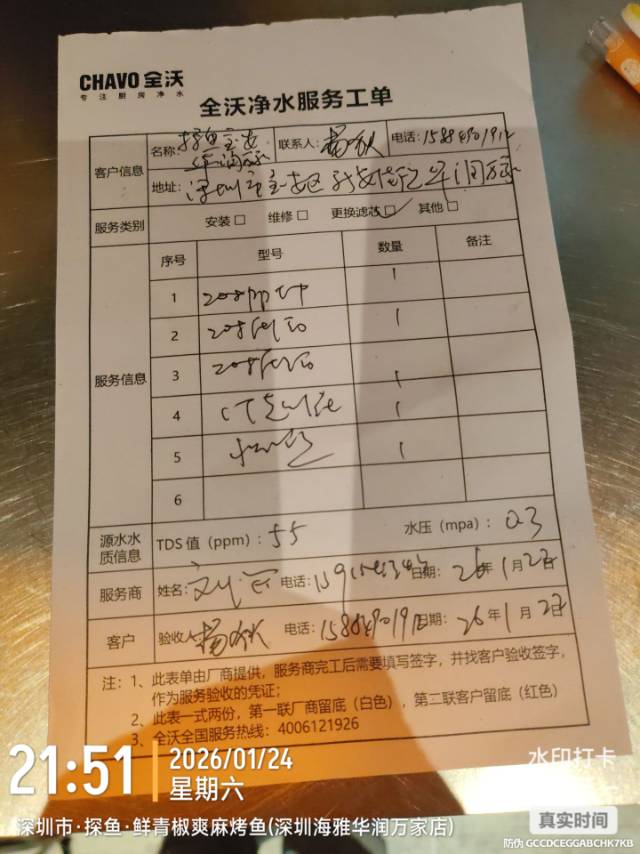 CHAVO 全沃
专注厨房净水
全沃净水服务工单
客户信息
名称: 探鱼宝安
华润万家
联系人: 杨秋
电话:
地址: 深圳市宝安区 华润万家
服务类别 安装 维修 更换滤芯 ✓ 其他
服务信息
序号 型号 数量 备注
1 208PP 1
2 208 1
3 208 1
4 1
5 1
6
源水水质信息
TDS 值（ppm）: 55 水压（mpa）: 0.3
服务商 姓名: 刘 电话: 日期: 26年1月2
客户 验收: 杨秋 电话: 日期: 26年1月2
注: 1、此表单由厂商提供，服务商完工后需要填写签字，并找客户验收签字，
作为服务验收的凭证;
2、此表一式两份，第一联厂商留底（白色），第二联客户留底（红色）
3、全沃全国服务热线: 4006121926
21:51
2026/01/24
星期六
水印打卡
深圳市·探鱼·鲜青椒爽麻烤鱼(深圳海雅华润万家店)
真实时间
防伪 GCCDCEGGABCHK7KB